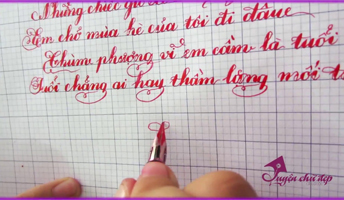 Những chiếc giỏ
Em chở mùa hè của tôi đi đâu
Chùm phượng vĩ em cầm là tuổi
Tuổi chẳng ai hay thầm lặng mối t
Luyện chữ đẹp